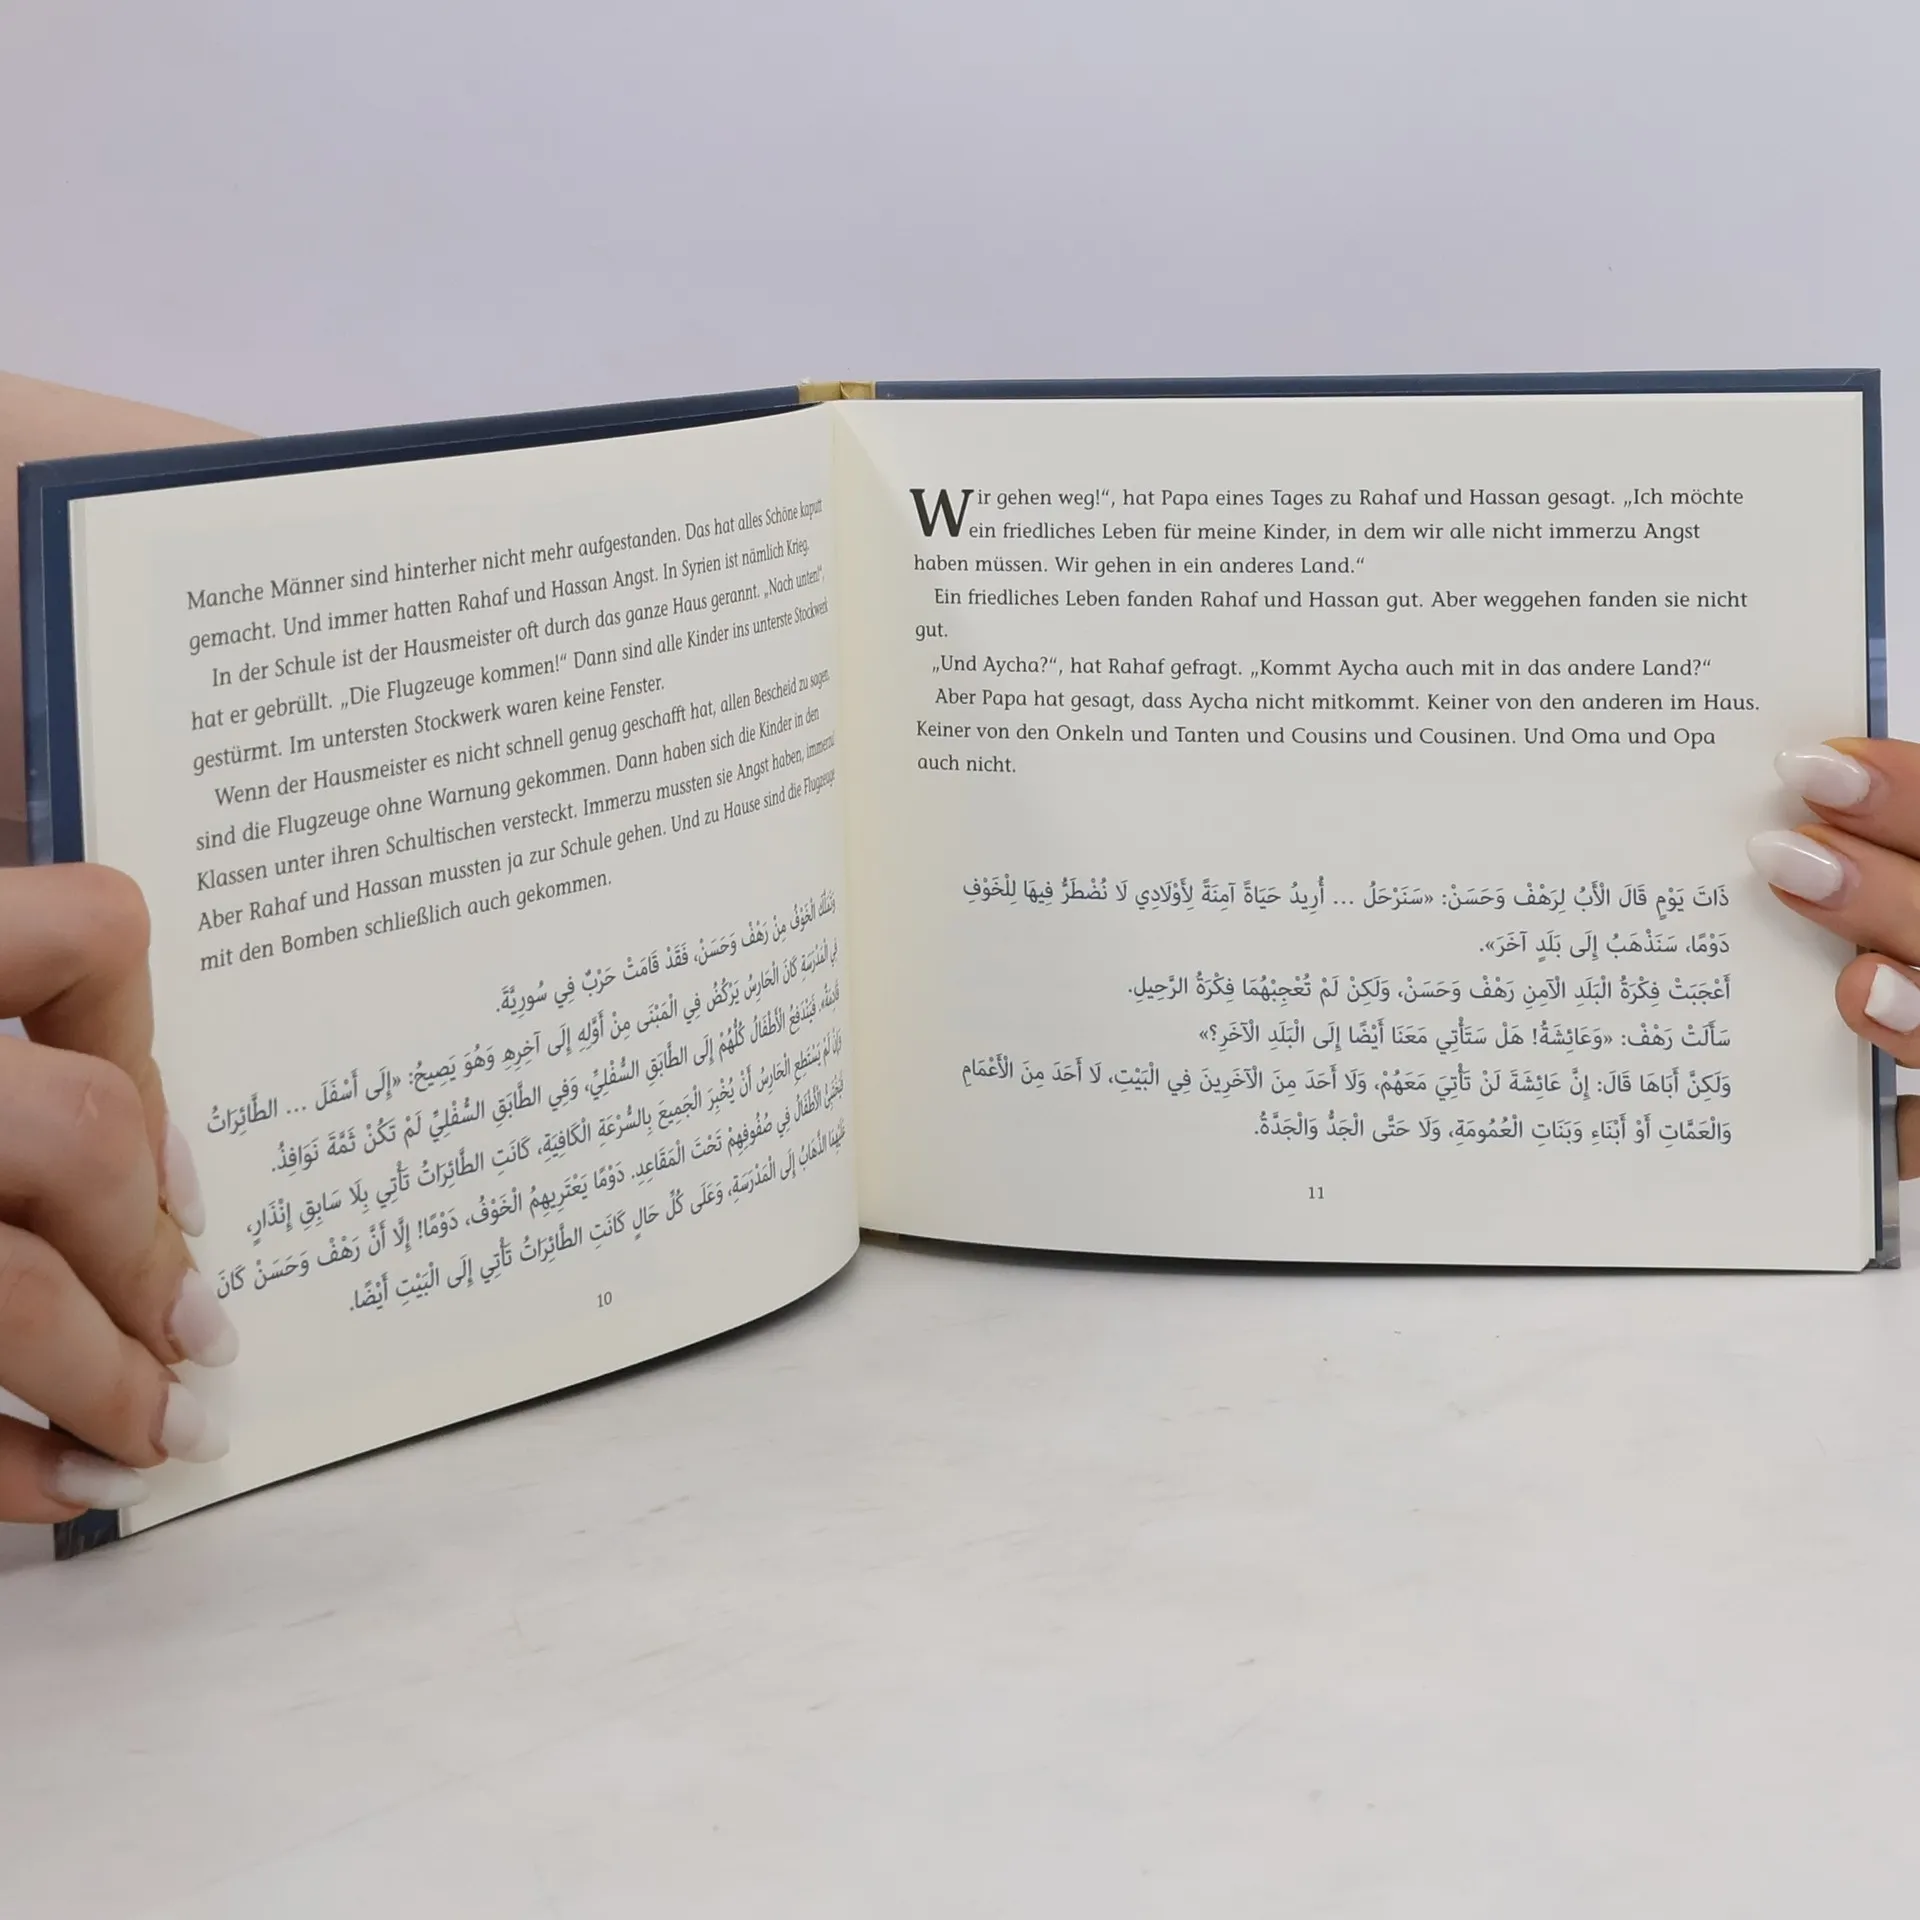 Manche Männer sind hinterher nicht mehr aufgestanden. Das hat alles Schöne kaputt
gemacht. Und immer hatten Rahaf und Hassan Angst. In Syrien ist nämlich Krieg.
In der Schule ist der Hausmeister oft durch das ganze Haus gerannt. „Nach unten!“,
hat er gebrüllt. „Die Flugzeuge kommen!“ Dann sind alle Kinder ins unterste Stockwerk
gestürmt. Im untersten Stockwerk waren keine Fenster.
Wenn der Hausmeister es nicht schnell genug geschafft hat, allen Bescheid zu sagen,
sind die Flugzeuge ohne Warnung gekommen. Dann haben sich die Kinder in den
Klassen unter ihren Schultischen versteckt. Immerzu mussten sie Angst haben, immerzu!
Aber Rahaf und Hassan mussten ja zur Schule gehen. Und zu Hause sind die Flugzeuge
mit den Bomben schließlich auch gekommen.
وَتَمَلَّكَ الْخَوْفُ مِنْ رَهْفْ وَحَسَنْ، فَقَدْ قَامَتْ حَرْبٌ فِي سُورِيَّةَ.
فِي الْمَدْرَسَةِ كَانَ الْحَارِسُ يَرْكُضُ فِي الْمَبْنَى مِنْ أَوَّلِهِ إِلَى آخِرِهِ وَهُوَ يَصِيحُ: «إِلَى أَسْفَلَ ... الطَّائِرَاتُ
قَادِمَةٌ». فَيَنْدَفِعُ الْأَطْفَالُ كُلُّهُمْ إِلَى الطَّابَقِ السُّفْلِيِّ، وَفِي الطَّابَقِ السُّفْلِيِّ لَمْ تَكُنْ ثَمَّةَ نَوَافِذُ.
وَإِنْ لَمْ يَسْتَطِعِ الْحَارِسُ أَنْ يُخْبِرَ الْجَمِيعَ بِالسُّرْعَةِ الْكَافِيَةِ، كَانَتِ الطَّائِرَاتُ تَأْتِي بِلَا سَابِقِ إِنْذَارٍ،
الْأَطْفَالُ فِي صُفُوفِهِمْ تَحْتَ الْمَقَاعِدِ. دَوْمًا يَعْتَرِيهِمُ الْخَوْفُ، دَوْمًا! إِلَّا أَنَّ رَهْفْ وَحَسَنْ كَانَ
عَلَيْهِمَا الذَّهَابُ إِلَى الْمَدْرَسَةِ، وَعَلَى كُلِّ حَالٍ كَانَتِ الطَّائِرَاتُ تَأْتِي إِلَى الْبَيْتِ أَيْضًا.
10
Wir gehen weg!“, hat Papa eines Tages zu Rahaf und Hassan gesagt. „Ich möchte
ein friedliches Leben für meine Kinder, in dem wir alle nicht immerzu Angst
haben müssen. Wir gehen in ein anderes Land.“
Ein friedliches Leben fanden Rahaf und Hassan gut. Aber weggehen fanden sie nicht
gut.
„Und Aycha?“, hat Rahaf gefragt. „Kommt Aycha auch mit in das andere Land?“
Aber Papa hat gesagt, dass Aycha nicht mitkommt. Keiner von den anderen im Haus.
Keiner von den Onkeln und Tanten und Cousins und Cousinen. Und Oma und Opa
auch nicht.
ذَاتَ يَوْمٍ قَالَ الْأَبُ لِرَهْفْ وَحَسَنْ: «سَنَرْحَلُ ... أُرِيدُ حَيَاةً آمِنَةً لِأَوْلَادِي لَا نُضْطَرُّ فِيهَا لِلْخَوْفِ
دَوْمًا، سَنَذْهَبُ إِلَى بَلَدٍ آخَرَ».
أَعْجَبَتْ فِكْرَةُ الْبَلَدِ الْآمِنِ رَهْفْ وَحَسَنْ، وَلَكِنْ لَمْ تُعْجِبْهُمَا فِكْرَةُ الرَّحِيلِ.
سَأَلَتْ رَهْفْ: «وَعَائِشَةُ! هَلْ سَتَأْتِي مَعَنَا أَيْضًا إِلَى الْبَلَدِ الْآخَرِ؟»
وَلَكِنَّ أَبَاهَا قَالَ: إِنَّ عَائِشَةَ لَنْ تَأْتِيَ مَعَهُمْ، وَلَا أَحَدَ مِنَ الْآخَرِينَ فِي الْبَيْتِ، لَا أَحَدَ مِنَ الْأَعْمَامِ
وَالْعَمَّاتِ أَوْ أَبْنَاءِ وَبَنَاتِ الْعُمُومَةِ، وَلَا حَتَّى الْجَدُّ وَالْجَدَّةُ.
11